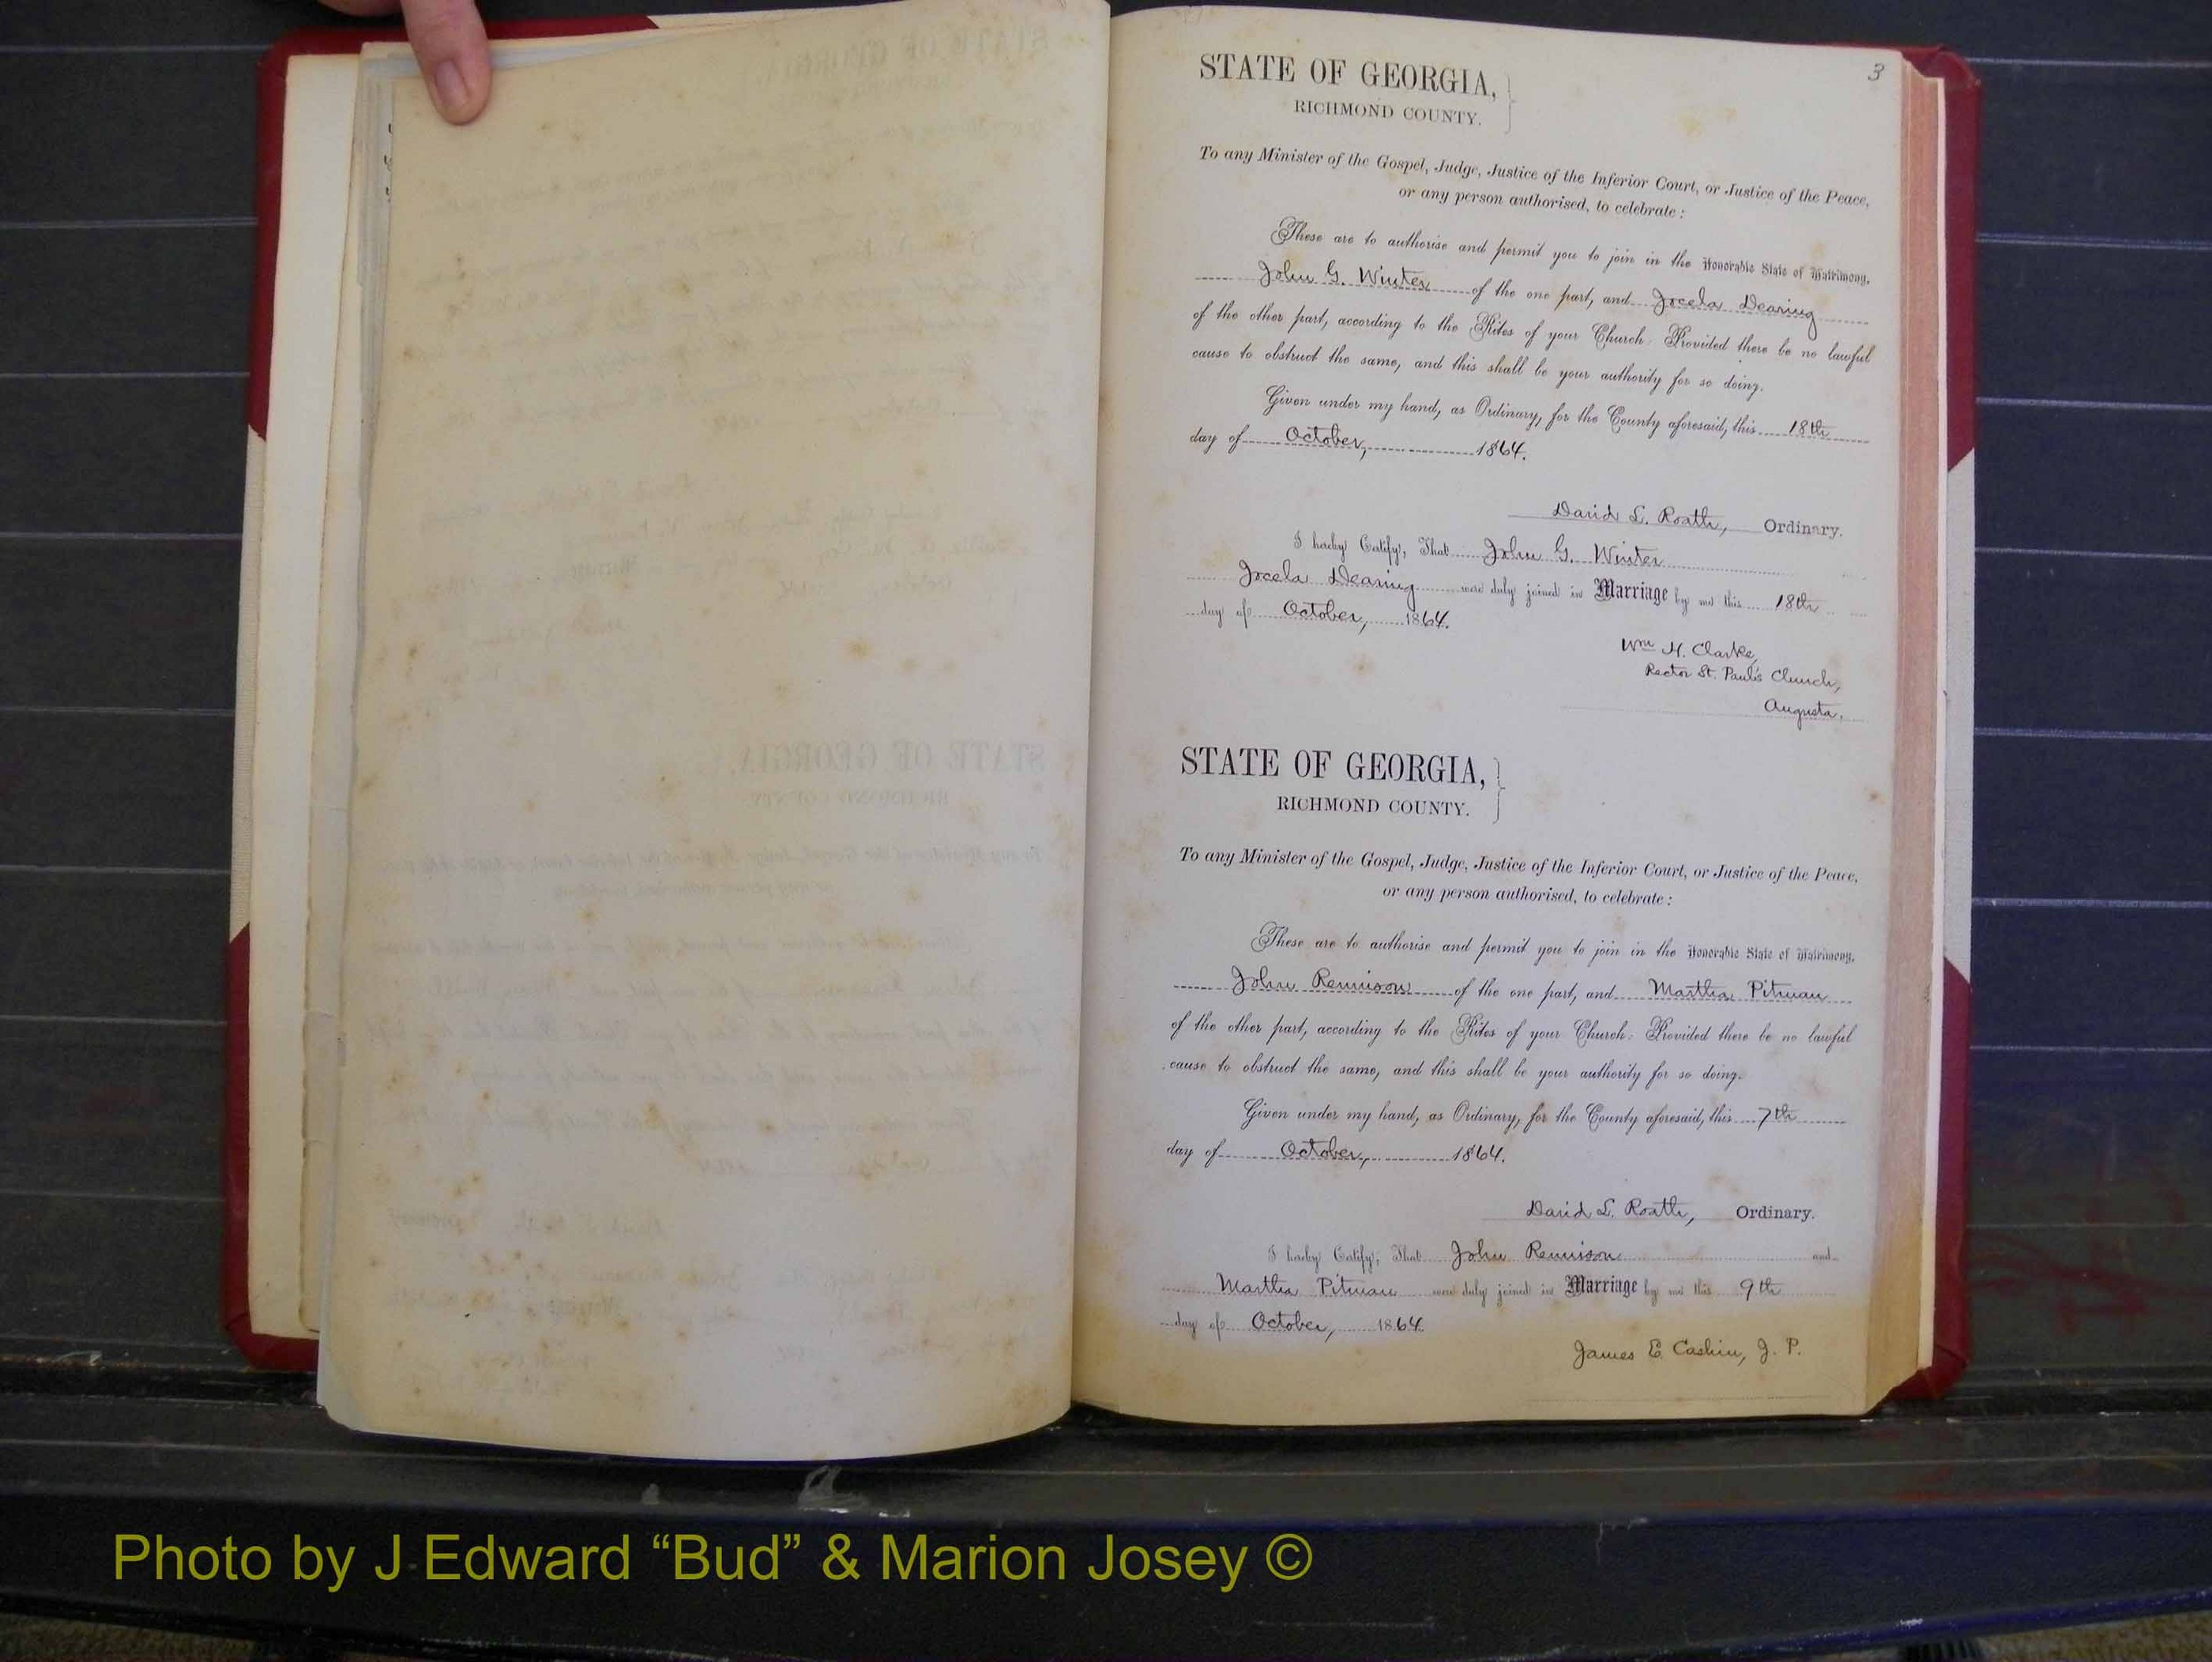 3
STATE OF GEORGIA,
RICHMOND COUNTY.
To any Minister of the Gospel, Judge, Justice of the Inferior Court, or Justice of the Peace,
or any person authorised, to celebrate:
These are to authorise and permit you to join in the Honorable State of Matrimony,
John G. Winter of the one part, and Jocela Dearing
of the other part, according to the Rites of your Church: Provided there be no lawful
cause to obstruct the same, and this shall be your authority for so doing.
Given under my hand, as Ordinary, for the County aforesaid, this 18th
day of October, 1864.
David L. Roath, Ordinary.
I hereby Certify, That John G. Winter
Jocela Dearing were duly joined in Marriage by me this 18th
day of October, 1864.
Wm H. Clarke,
Rector St. Paul's Church,
Augusta.
STATE OF GEORGIA,
RICHMOND COUNTY.
To any Minister of the Gospel, Judge, Justice of the Inferior Court, or Justice of the Peace,
or any person authorised, to celebrate:
These are to authorise and permit you to join in the Honorable State of Matrimony,
John Rennison of the one part, and Martha Pitman
of the other part, according to the Rites of your Church: Provided there be no lawful
cause to obstruct the same, and this shall be your authority for so doing.
Given under my hand, as Ordinary, for the County aforesaid, this 7th
day of October, 1864.
David L. Roath, Ordinary.
I hereby Certify, That John Rennison and
Martha Pitman were duly joined in Marriage by me this 9th
day of October, 1864
James E. Cashin, J. P.
Photo by J Edward “Bud” & Marion Josey ©